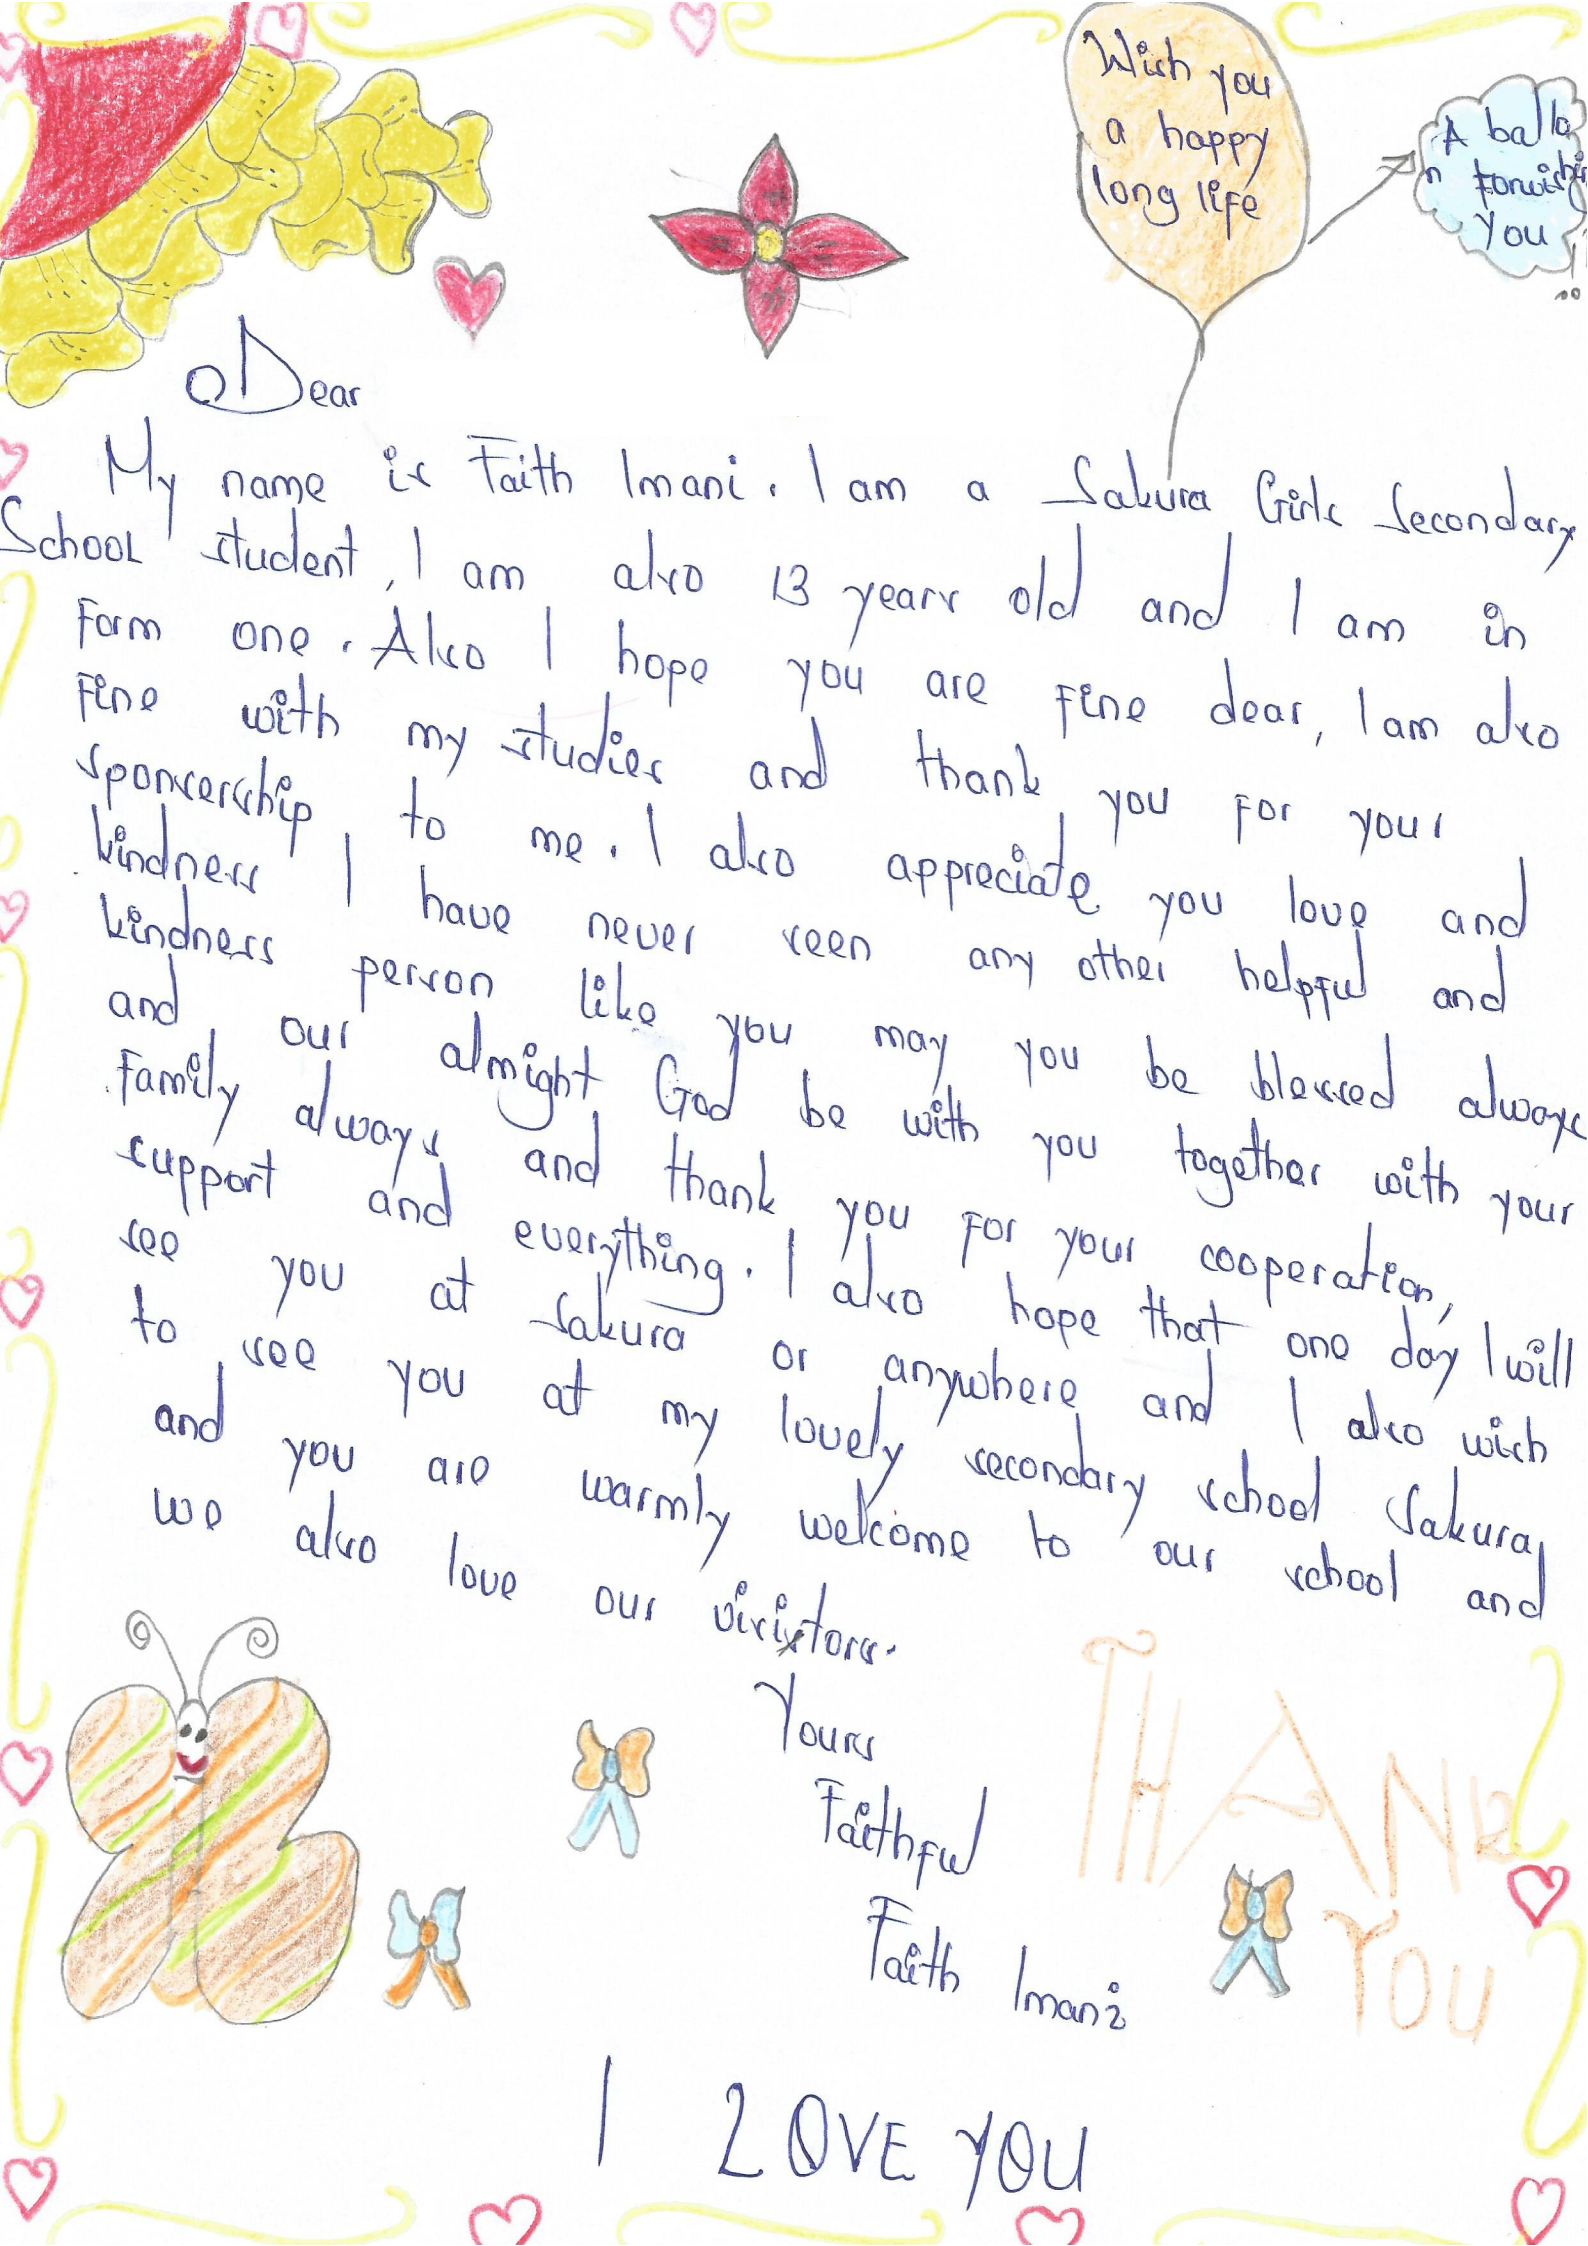 Wish you
a happy
long life
A ballo
n forwishin
You
Dear
My name is Faith Imani. I am a Sakura Girls Secondary
School student, I am also 13 years old and I am in
Form one. Also I hope you are Fine dear, I am also
Fine with my studies and thank you For your
sponsership to me. I also appreciate you love and
kindness I have never seen any other helpful and
kindness person like you may you be blessed always
and our almight God be with you together with your
Family always and thank you For your cooperation,
support and everything. I also hope that one day I will
see you at Sakura or anywhere and I also wish
to see you at my lovely secondary school Sakura,
and you are warmly welcome to our school and
we also love our visitors.
Yours
Faithful
Faith Imani
THANK
YOU
I LOVE YOU